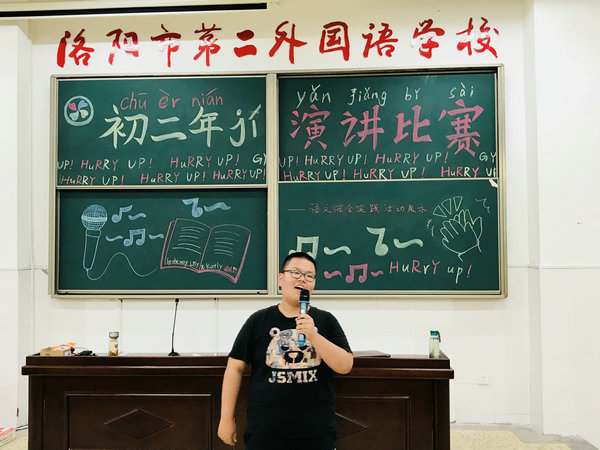 洛阳市第二外国语学校
chū èr nián jí
初二年
yǎn jiǎng bǐ sài
演讲比赛
UP! HuRRY UP! HuRRY UP!
HuRRY UP! HuRRY UP! HuRRY UP!
UP! HuRRY UP! HuRRY UP!
HuRRY UP! HuRRY UP! HuRRY
——语文综合实践活动展示
HuRrY up!
JSMIX